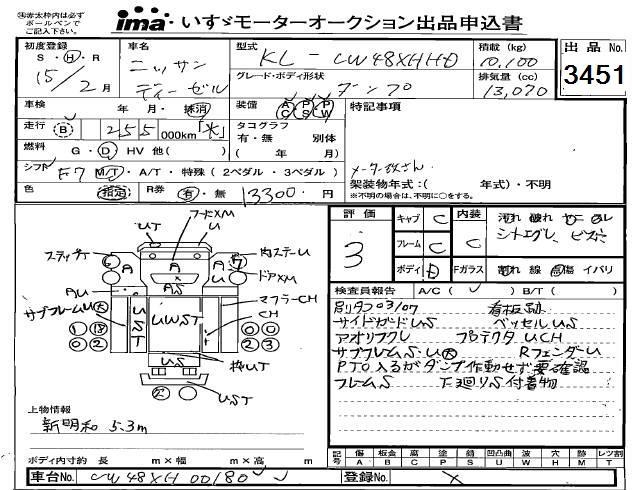 ㊟赤太枠内は必ず
ボールペンで
ご記入下さい。
ima いすゞモーターオークション出品申込書
初度登録
S・H・R
15/2月
車名
ニッサン
ディーゼル
型式
KL-CW48XHHD
グレード・ボディ形状
ダンプ
積載 (kg)
10,100
排気量 (cc)
13,070
出品No.
3451
車検 年 月・抹消
装備 AC PS PW
特記事項
走行 (B) 255 000km「米」
タコグラフ
有・無 別体
( 年 月)
燃料 G・D HV 他( )
シフト F7 M/T・A/T・特殊(2ペダル・3ペダル)
色 R券 有・無 13300円
架装物年式:( 年式)・不明
※不明の場合は、不明に○をする。
評価
3
キャブ C
フレーム C
ボディ D
内装 C
Fガラス
線 イバリ
検査員報告 A/C( ✓ ) B/T( )
別リタコ03/07 看板跡
サイドガードUS ベッセルUS
アオリフクレ プロテクタUCH
サブフレームS・U大 RフェンダーU
PTO入るがダンプ作動せず要確認
フレームS 下廻りS付着物
フードXM
UT
U
ステップT
肉ステーU
A
A
A
ドアXM
AU
AS
サブフレームU大
マフラーCH
UST
UWST
CH
US
枠UT
UST
上物情報
新明和 5.3m
ボディ内寸約 長 m×幅 m×高 m
記号
傷 A
板金 B
腐 C
塗 P
錆 S
凹凸曲 U
波 W
穴 H
跡 M
レツ割 T
車台No. CW48XH 00180
登録No.